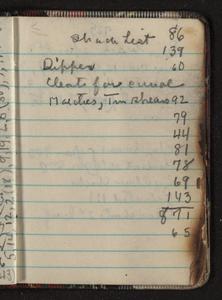 Shack List 86
139
Dipper 60
Cleats for canvas
Matches, Tin Shears 92
79
44
81
78
69
143
871
65